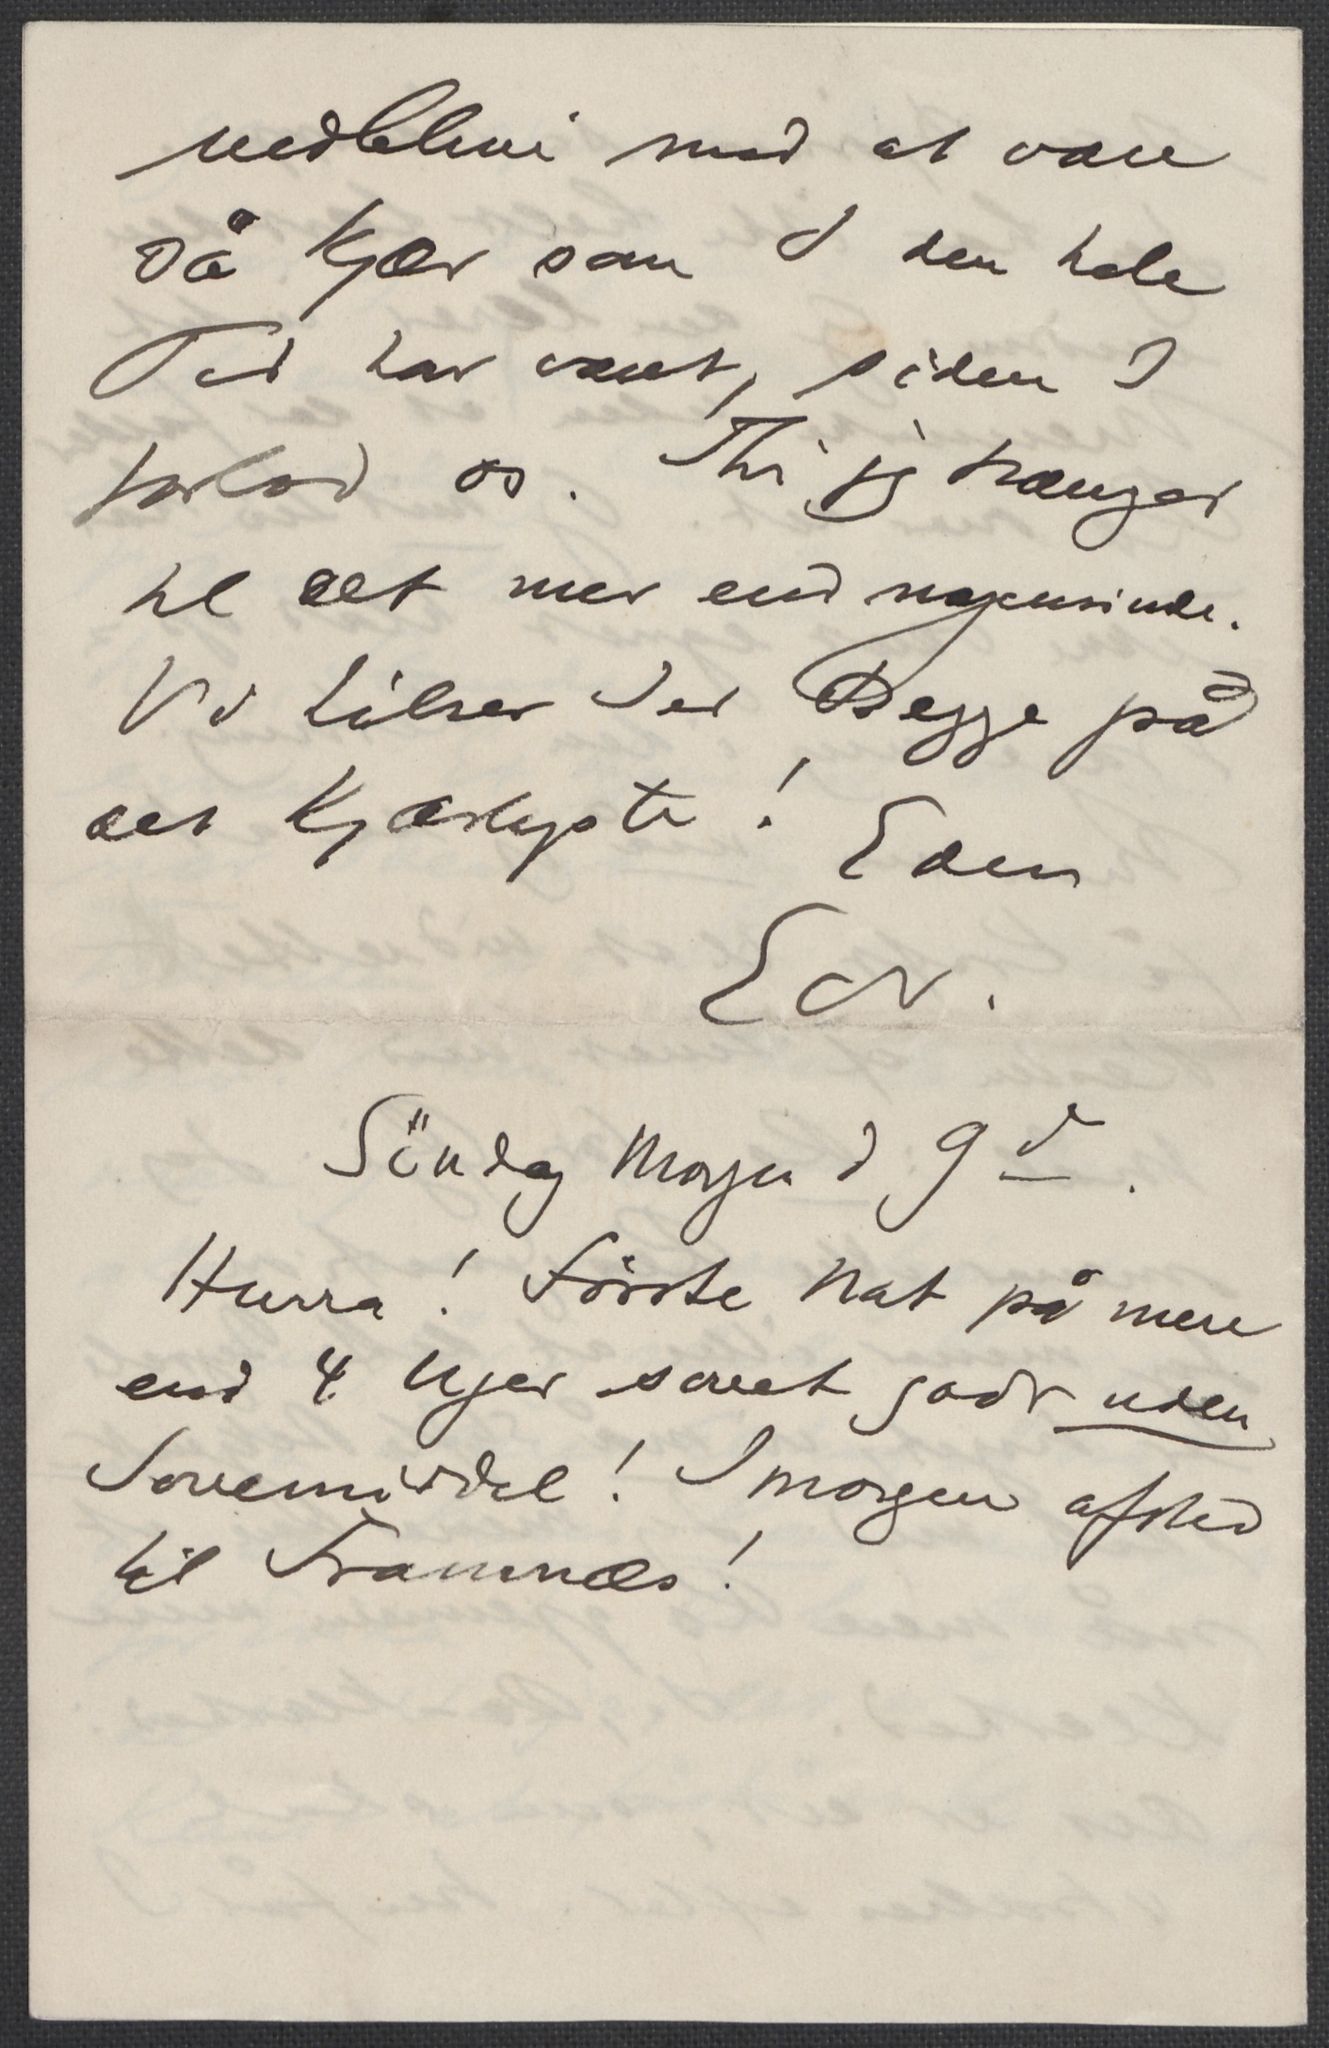 vedblive med at være
så kjær som I den hele
Tid har været, siden I
forlod os. Thi jeg trænger
til det mer end nogensinde.
Vi hilser Jer Begge på
det kjærligste!
Eders
Edv.
Söndag Morgen d 9d.
Hurra! Förste Nat på mere
end 4 Uger sovet godt uden
Sovemiddel! Imorgen afsted
til Framnæs!